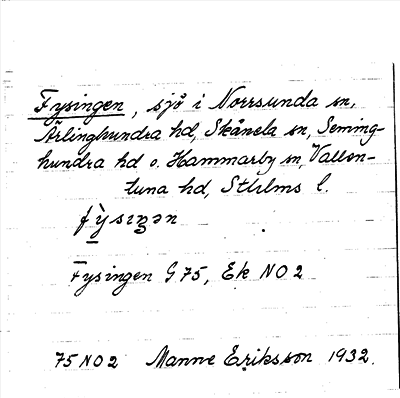 Fysingen, sjö i Norrsunda sn,
Ärlinghundra hd, Skånela sn, Seming-
hundra hd o. Hammarby sn, Vallen-
tuna hd, Sthlms l.
fỳsıŋən
Fysingen G 75, Ek NO 2
75 NO 2 Manne Eriksson 1932.